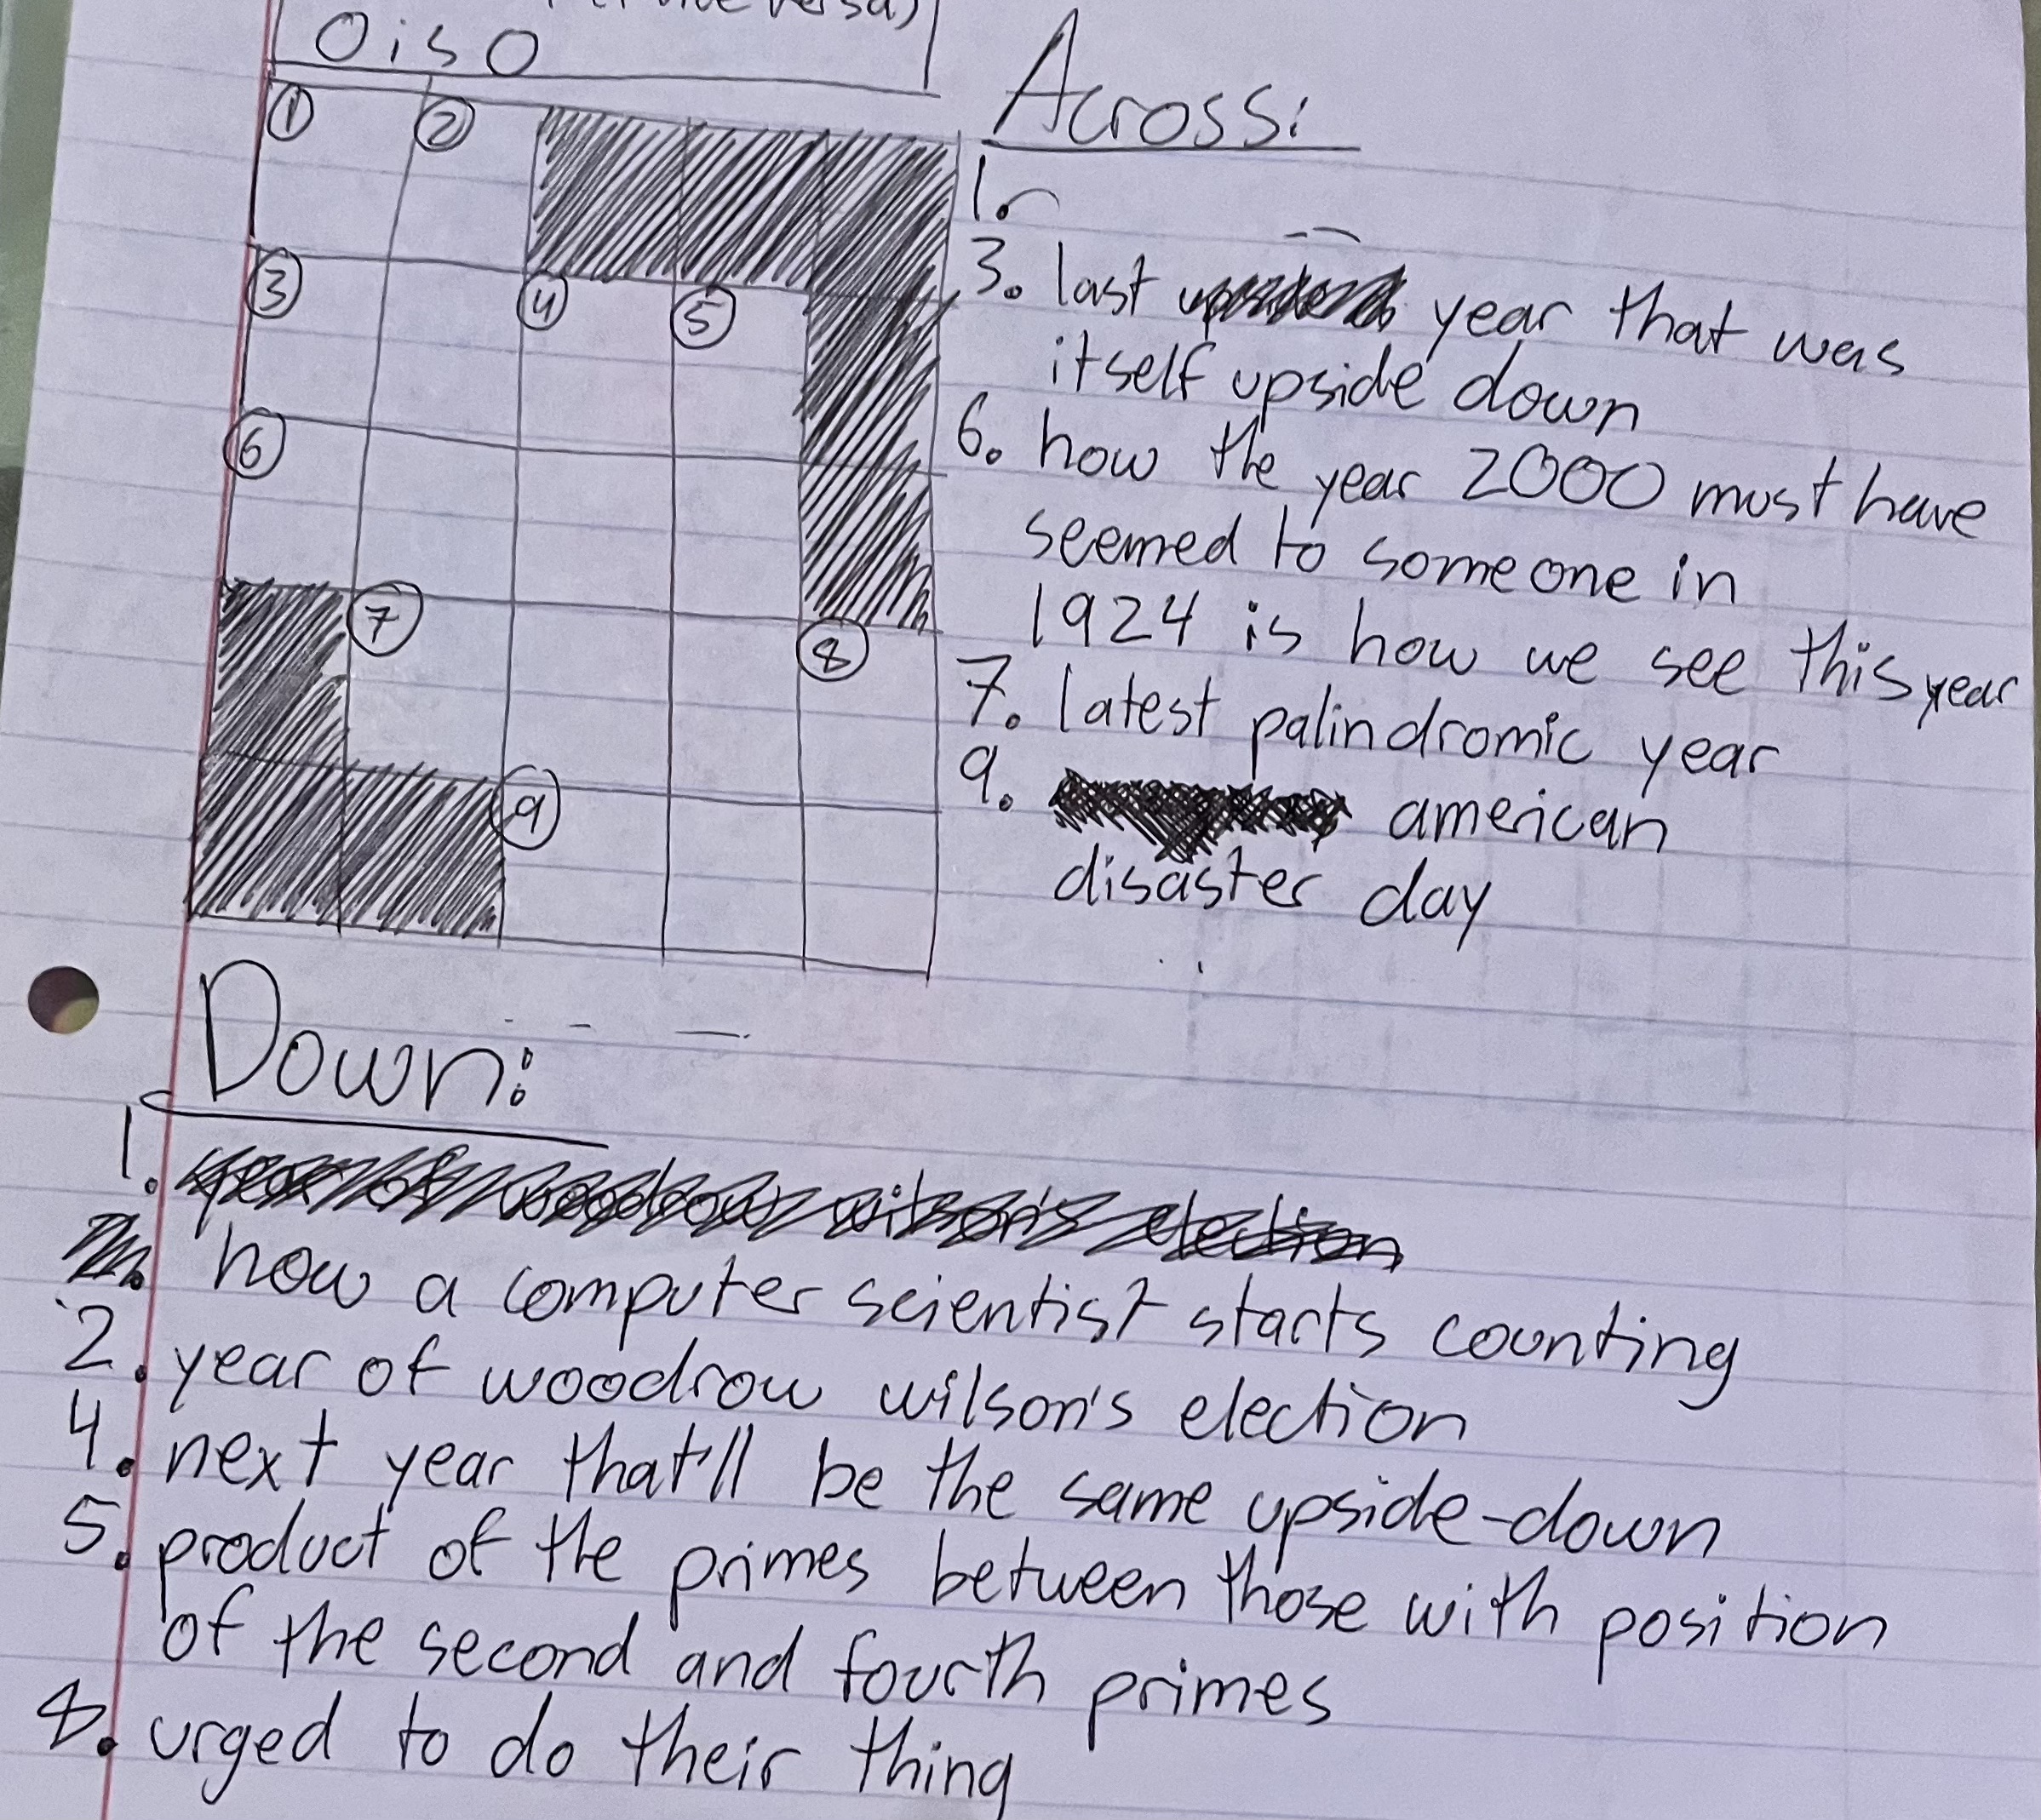 versa)
OisO
1 2
3 4 5
6
7 8
9
Across:
1.
3. last year that was
itself upside down
6. how the year 2000 must have
seemed to someone in
1924 is how we see this year
7. latest palindromic year
9. american
disaster day
Down:
1. year of woodrow wilson's election
how a computer scientist starts counting
2. year of woodrow wilson's election
4. next year that'll be the same upside-down
5. product of the primes between those with position
of the second and fourth primes
8. urged to do their thing